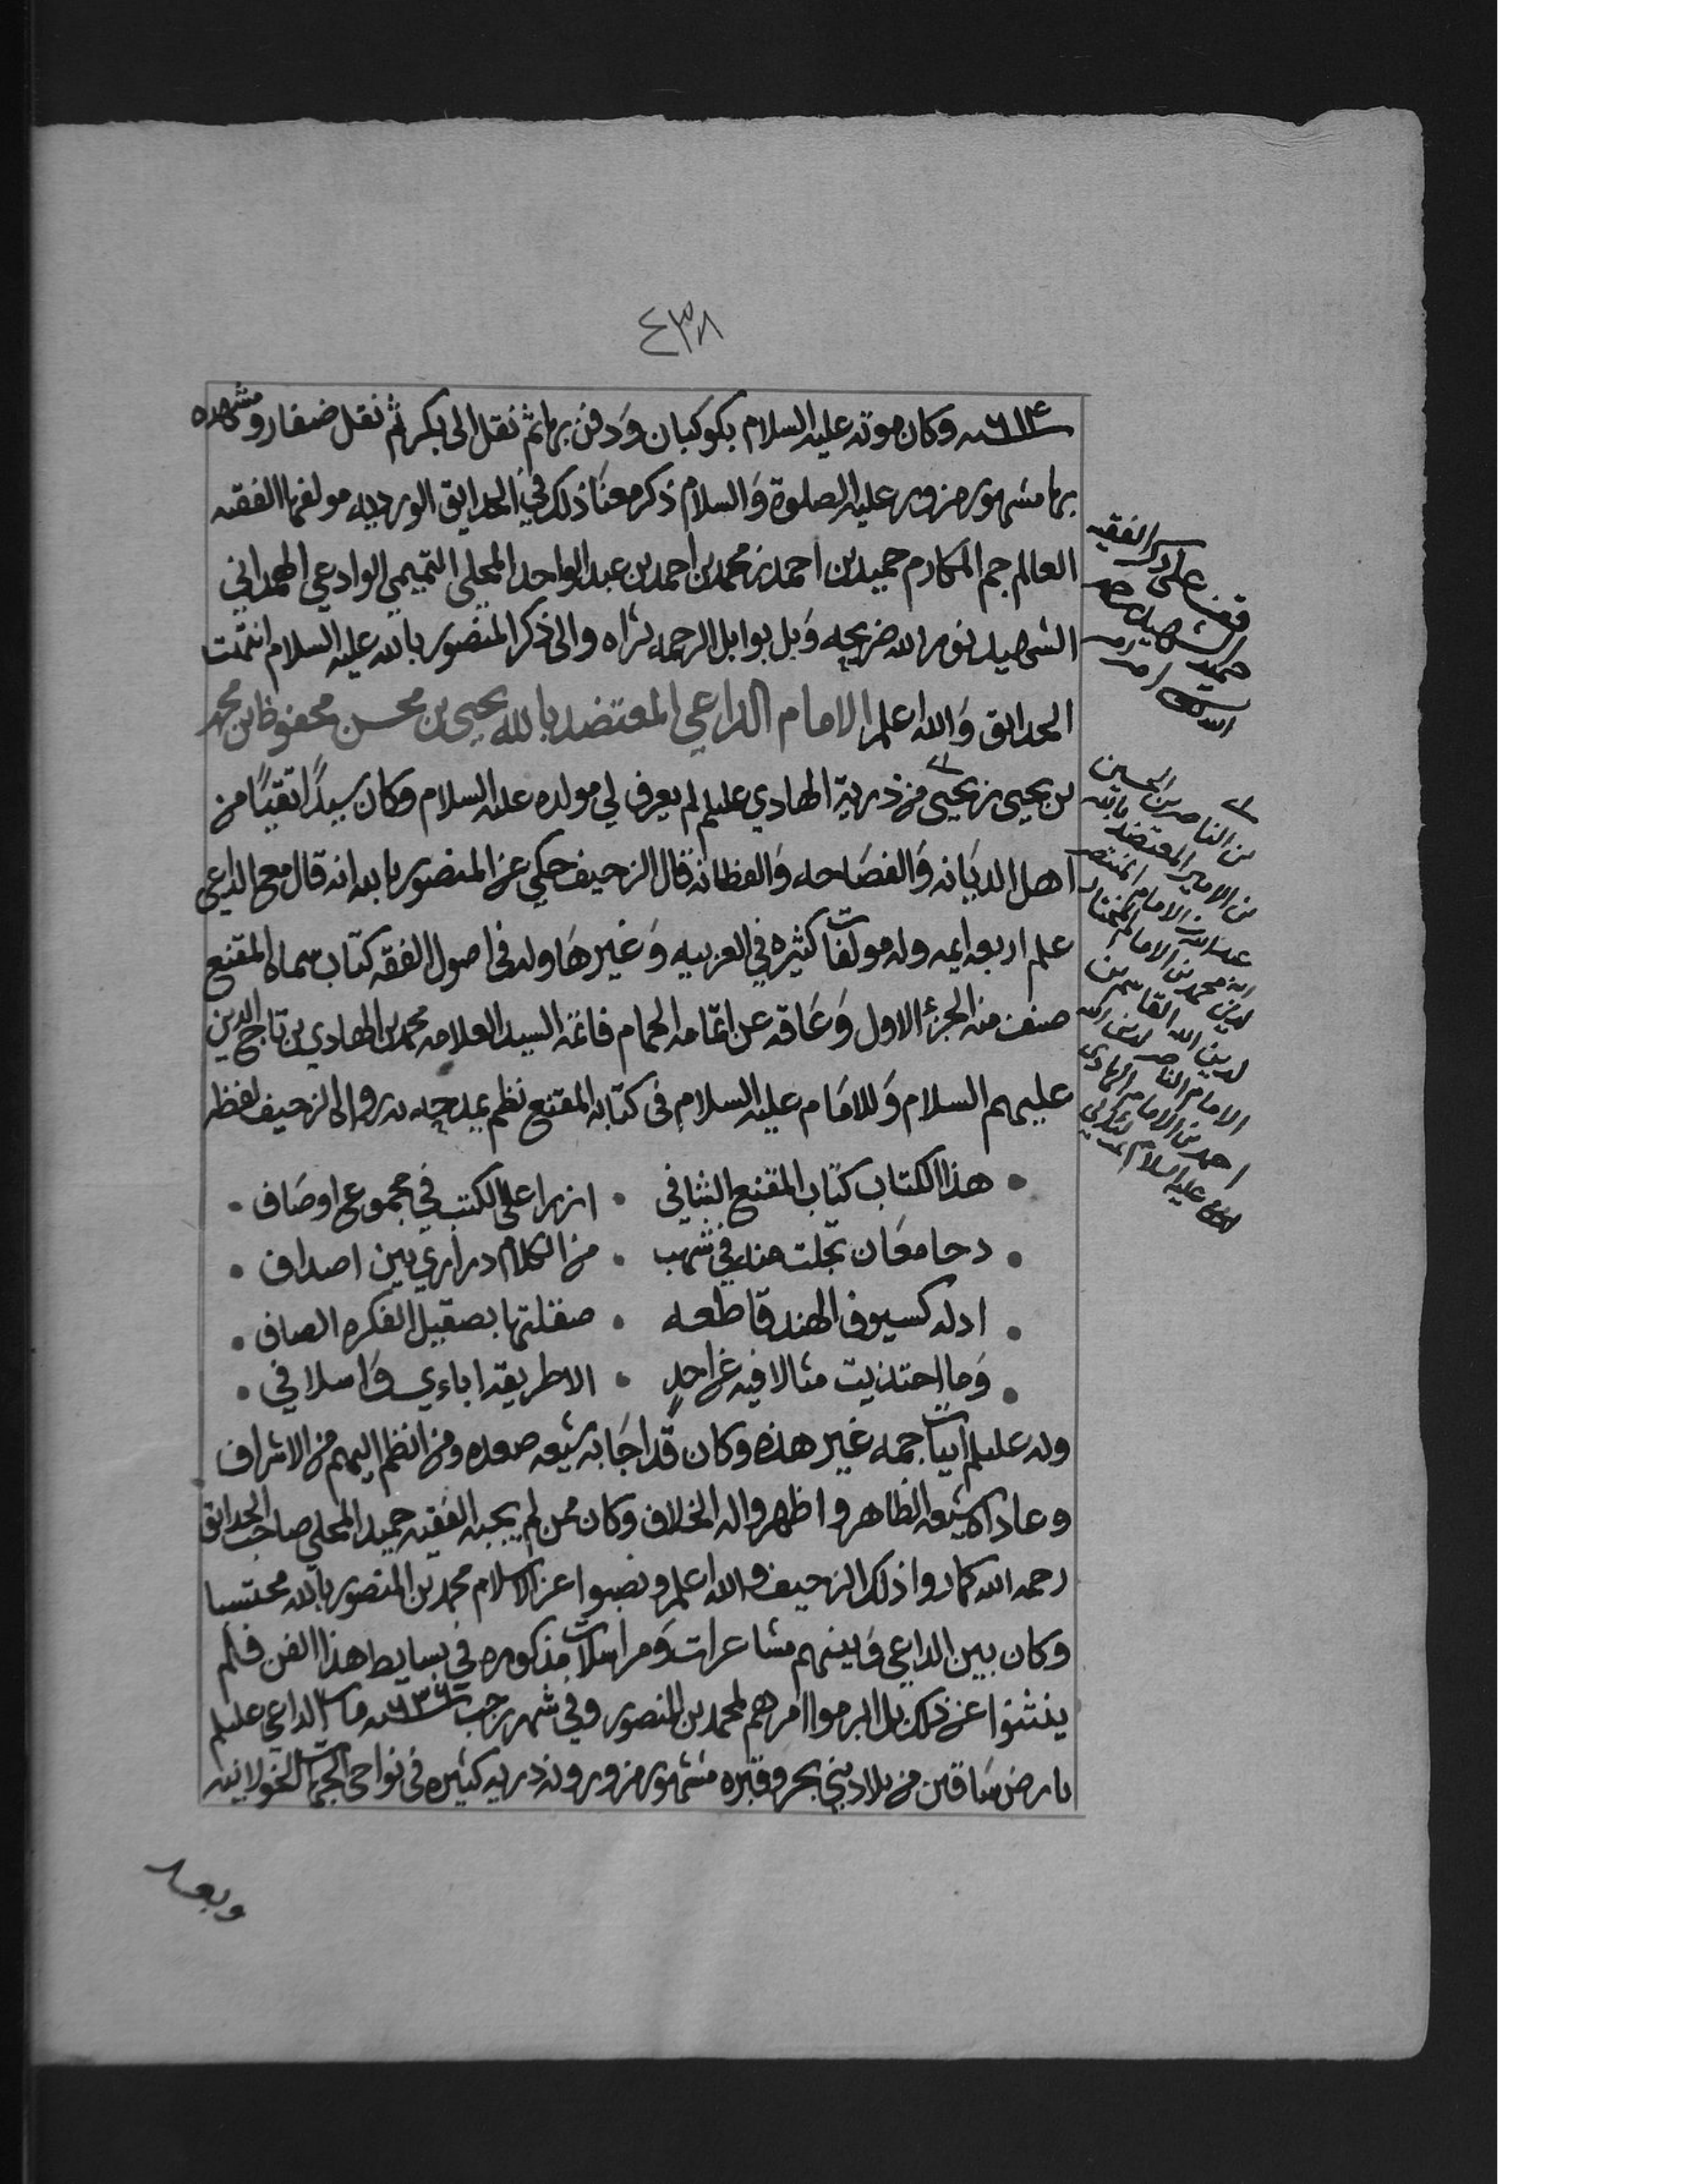 ٤٣٨
سنة ٦١٤ وكان موته عليه السلام بكوكبان وَدفن بها ثم نقل الى بكر ثم نقل ضفار ومشهده
بها مشهور مزور عليه الصلوة وَالسلام ذكر معنَا ذلك في الحدايق الورديه مولفها الفقيه
العالم جم المكارم حميد بن احمد بن محمد بن احمد بن عبد الواحد المحلي التميمي الوادعي الهمداني
الشهيد نور الله ضريحه وَبل بوابل الرحمه ثراه والى ذكر المنصور بالله عليه السلام انتهت
الحدايق وَالله اعلم الامام الداعي المعتضد بالله يحيى بن محسن محفوظ بن محمد
بن يحيى بن يحيى من ذرية الهادي عليلم لم يعرف لي مولده عليه السلام وكان سيدًا تقيًا من
اهل الديَانه وَالفصَاحه وَالفطانه قال الزحيف حكي عن المنصور بالله انه قال مع الداعي
علم اربعه ايمه وله مولفات كثيره في العربيه وَغيرهَا وله في اصول الفقه كتاب سماه المقنع
صنف منه الجزء الاول وَعَاقه عن اتمامه الحمام فاتمه السيد العلامه محمد بن الهادي بن تاج الدين
عليهم السلام وَللامَام عليه السلام في كتابه المقنع نظم يمدحه به رواه الزحيف لفظه
هذا الكتاب كتاب المقنع الشافي • ازرا على الكتب في مجموع اوصَاف
دحا معَان تجلت منه في شهب • من الكلام دراري بين اصداف
ادله كسيوف الهند قاطعه • صقلتها بصقيل الفكره الصاف
وَما احتذيت مثالا فيه عن احدٍ • الا طريقة اباءي وَاسلافي
وله عليلم ابيات جمه غير هذه وكان قد اجَابه شيعه صعده ومن انظم اليهم من الاشراف
وعاداه شيعه الظاهر واظهروا له الخلاف وكان ممن لم يجبه الفقيه حميد المحلي صاحب الحدايق
رحمه الله كما روا ذلك الزحيف والله اعلم ونصبوا عز الاسلام محمد بن المنصور بالله محتسبا
وكان بين الداعي وَبينهم مشاعرات وَمراسلات مذكوره في بسايط هذا الفن فلم
ينثنوا عن ذلك بل ابرموا امرهم لمحمد بن المنصور وفي شهر رجب سنة ٦٣٦ مات الداعي عليلم
بارض سَاقين من بلاد بني بحر وقبره مشهور مزور وله ذريه كثيره في نواحي الجهات الخولانيه
وبعد
قف على ذكر الفقيه
حميد الشهيد
بن الناصر بن الحسين
بن الامير المعتضد بالله
عبدالله بن الامام المنتصر
لدين الله محمد بن الامام المختار
لدين الله القاسم بن
الامام الناصر لدين الله
احمد بن الامام الهادي
عليه السلام